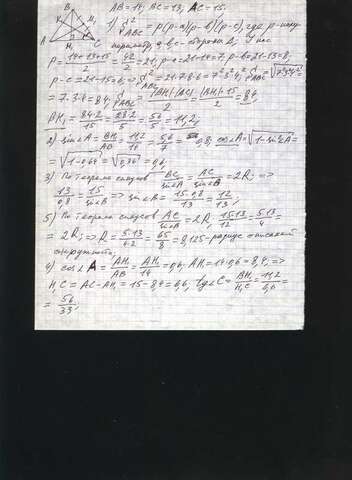 B
A H₁ C
AB = 14; BC = 13; AC = 15.
1) S²ABC = p(p-a)(p-b)(p-c), где p - полу
периметр, a, b, c - стороны Δ. У нас
p = (14+13+15)/2 = 42/2 = 21, p-a = 21-14 = 7, p-b = 21-13 = 8,
p-c = 21-15 = 6; => S² = 21·7·8·6 = 7²·3²·4²; SABC = √7²·3²·4² =
= 7·3·4 = 84, SABC = |BH₁|·|AC|/2 = |BH₁|·15/2 = 84,
BH₁ = 84·2/15 = 28·2/5 = 56/5 = 11,2,
2) sin∠A = BH₁/AB = 11,2/14 = 0,8, cos∠A = √1-sin²∠A =
= √1-0,64 = √0,36 = 0,6,
3) По теореме синусов BC/sin∠A = AC/sin∠B = 2R, =>
13/0,8 = 15/sin∠B => sin∠B = 15·0,8/13 = 12/13,
5) По теореме синусов AC/sin∠B = 2R, 15·13/12 = 5·13/4 =
= 2R, => R = 5·13/4·2 = 65/8 = 8,125 - радиус описаной
окружности.
4) cos∠A = AH₁/AB = AH₁/14 = 0,6, AH₁ = 14·0,6 = 8,4, =>
H₁C = AC - AH₁ = 15 - 8,4 = 6,6, tg∠C = BH₁/H₁C = 11,2/6,6 =
= 56/33,